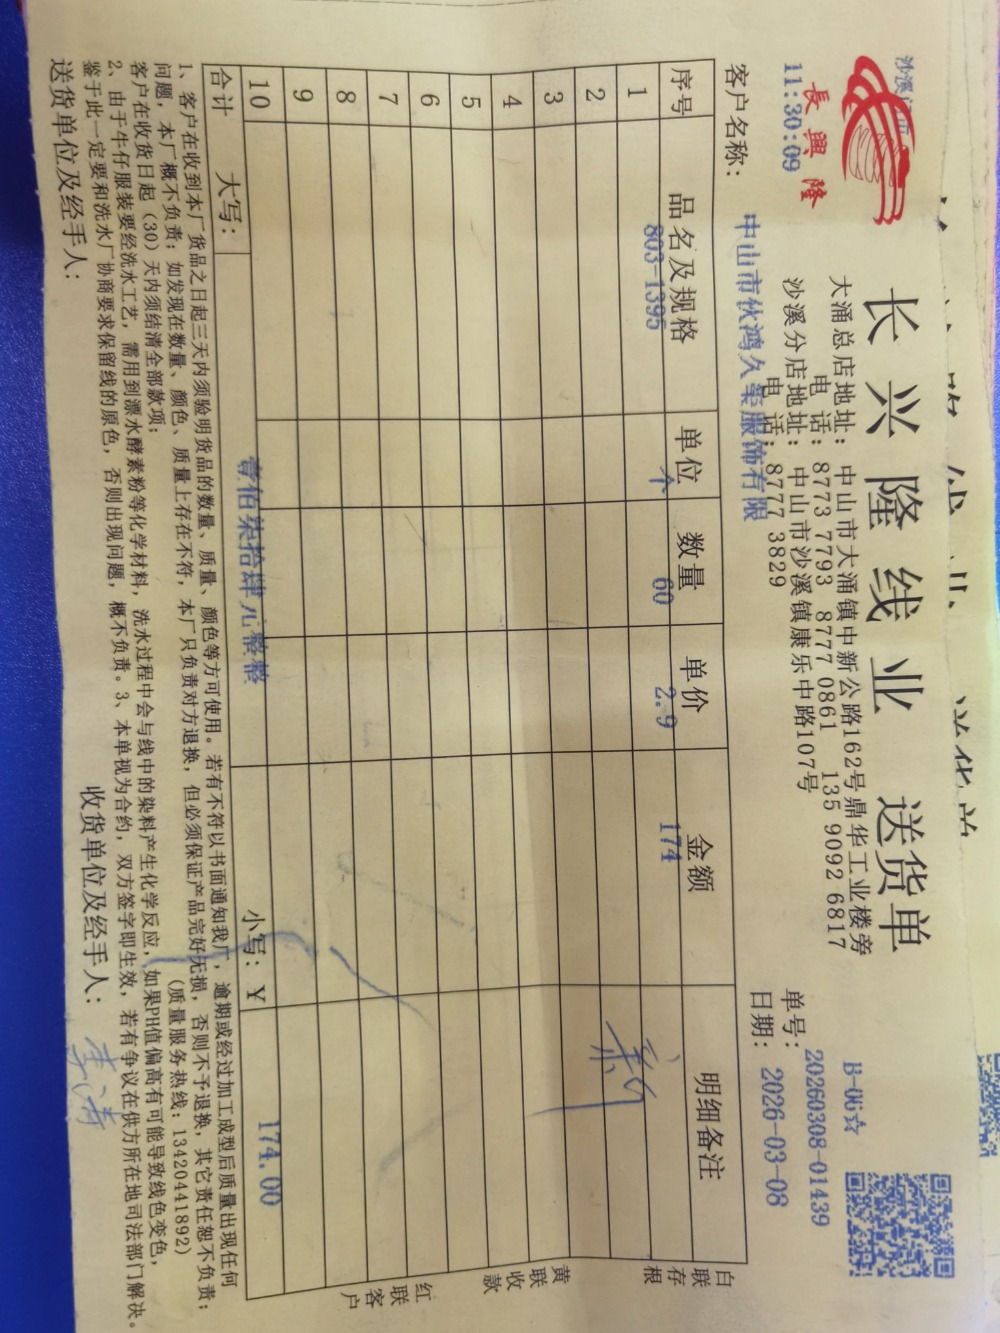 長興隆
11:30:09
长兴隆线业 送货单
大涌总店地址: 中山市大涌镇中新公路162号鼎华工业楼旁
电 话: 8773 7793 8777 0861 135 9092 6817
沙溪分店地址: 中山市沙溪镇康乐中路107号
电 话: 8777 3829
B-06☆
单号: 20260308-01439
日期: 2026-03-08
客户名称: 中山市伙鸿久 服饰有限
序号 品名及规格 单位 数量 单价 金额 明细备注
1 803-1395 个 60 2.9 174
2
3
4
5
6
7
8
9
10
合计 大写: 壹佰柒拾肆元整整 小写: ¥ 174.00
白联存根
黄联收款
红联客户
1、客户在收到本厂货品之日起三天内须验明货品的数量、质量、颜色等方可使用。若有不符以书面通知我厂,逾期或经过加工成型后质量出现任何
问题,本厂概不负责;如发现在数量、颜色、质量上存在不符,本厂只负责对方退换,但必须保证产品完好无损,否则不予退换,其它责任恕不负责;
客户在收货日起(30)天内须结清全部款项; (质量服务热线:13420441892)
2、由于牛仔服装要经洗水工艺,需用到漂水酵素粉等化学材料,洗水过程中会与线中的染料产生化学反应,如果PH值偏高有可能导致线色变色,
鉴于此一定要和洗水厂协商要求保留线的原色,否则出现问题,概不负责。3、本单视为合约,双方签字即生效,若有争议在供方所在地司法部门解决。
送货单位及经手人: 收货单位及经手人: